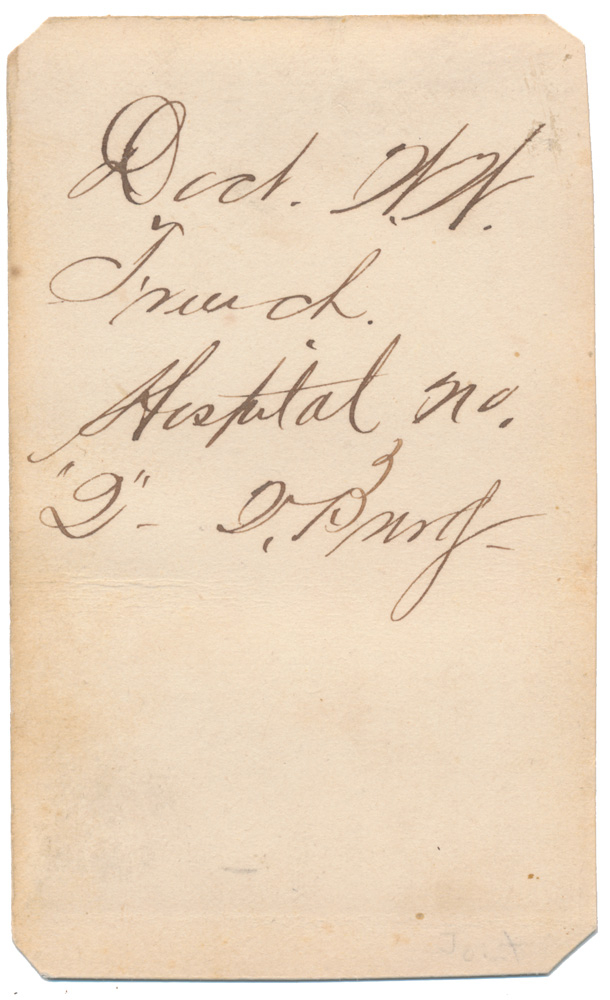 Doct. W.W.
French.
Hospital no.
"2" - V. Burg -